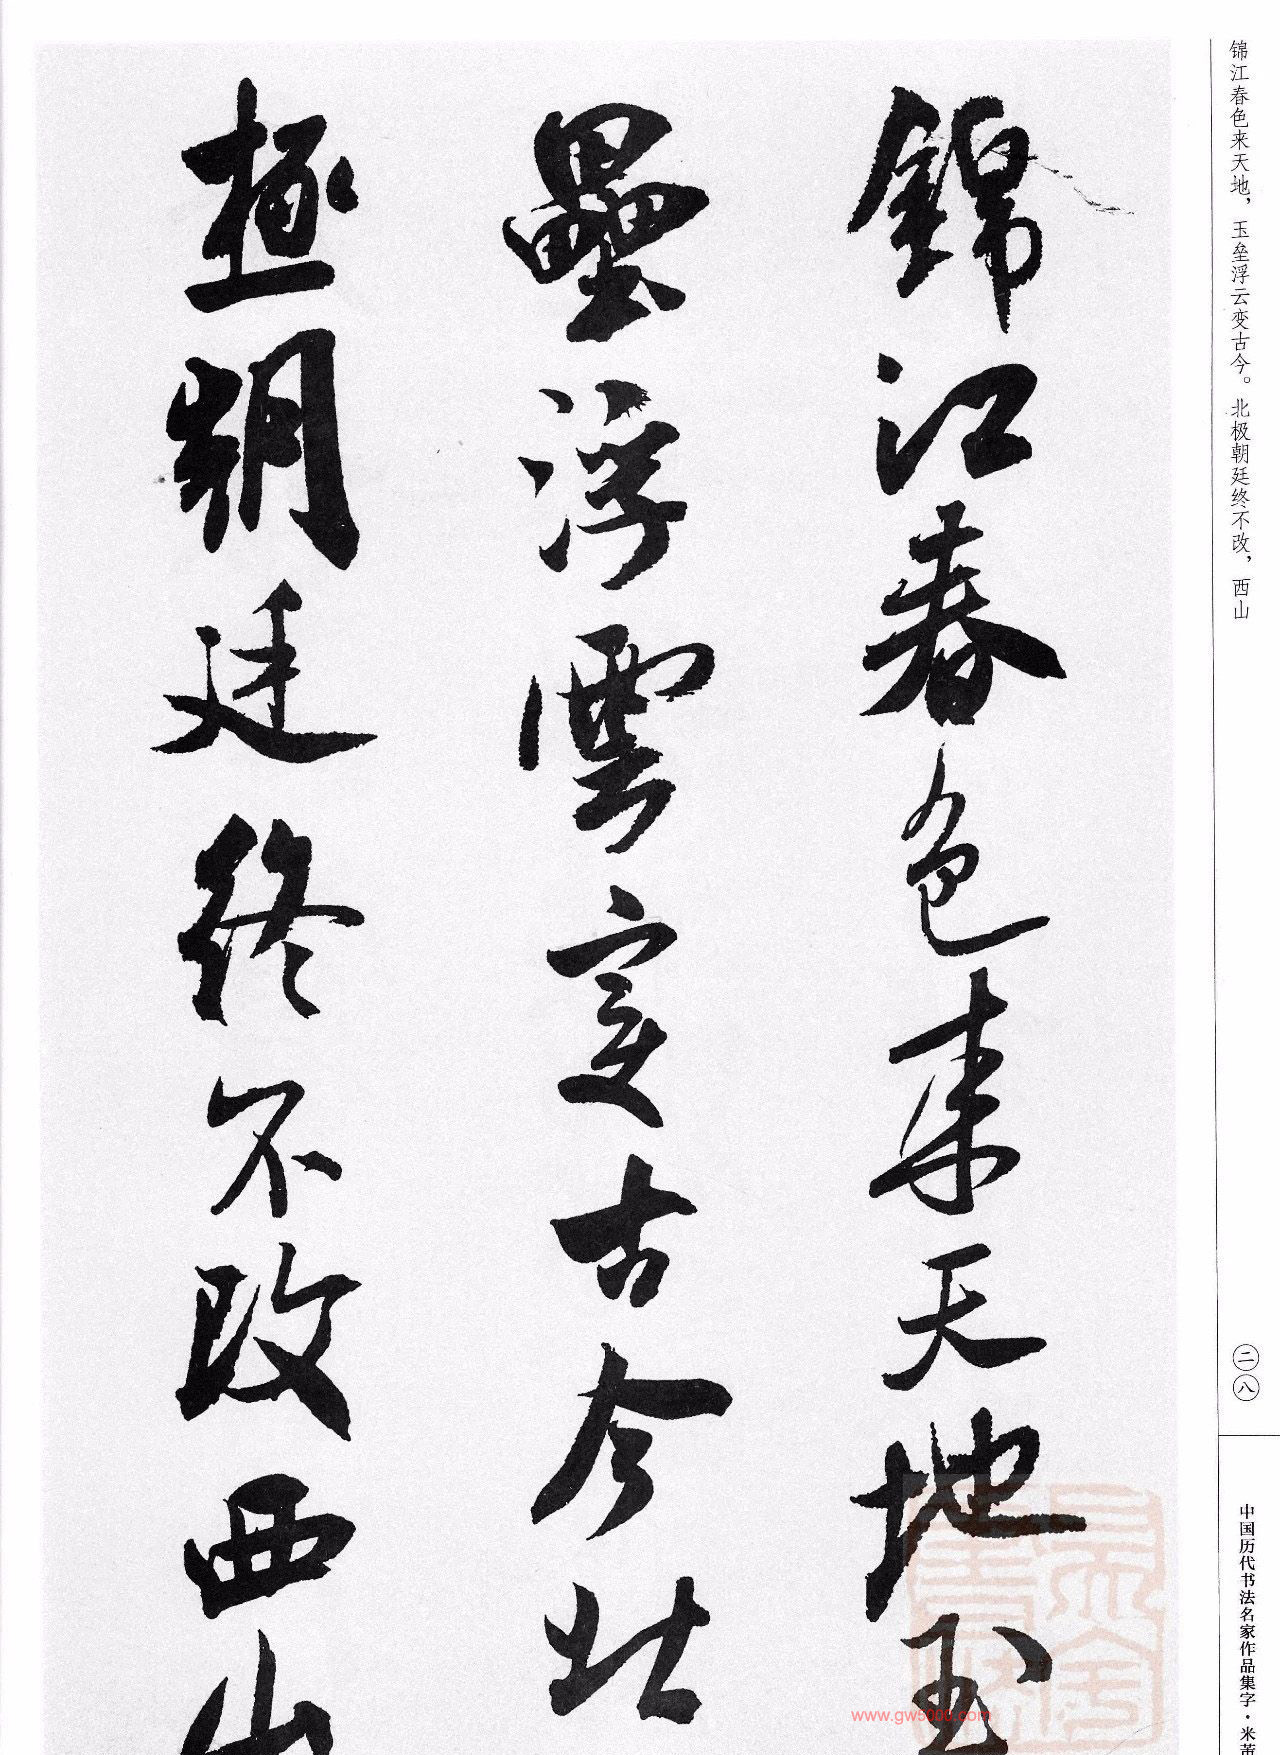 锦江春色来天地，玉垒浮云变古今。北极朝廷终不改，西山
錦江春色来天地玉
壘浮雲变古今北
極朝廷終不改西山
二八
中国历代书法名家作品集字·米芾
www.gw5000.com